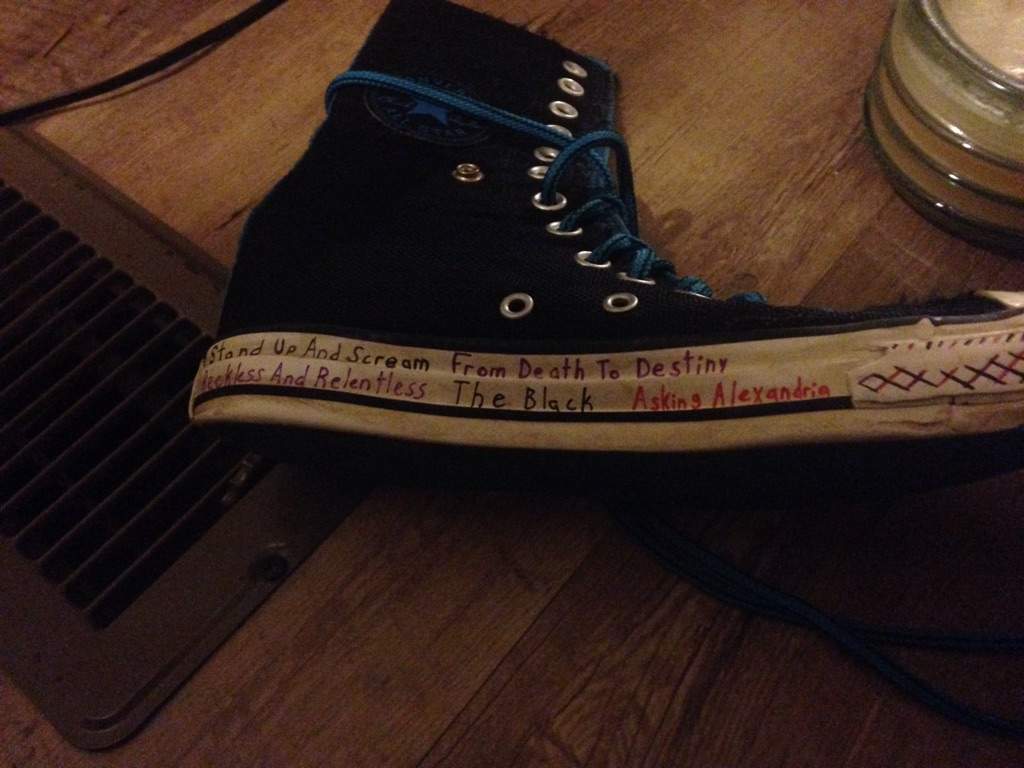 Stand Up And Scream From Death To Destiny
Reckless And Relentless The Black Asking Alexandria